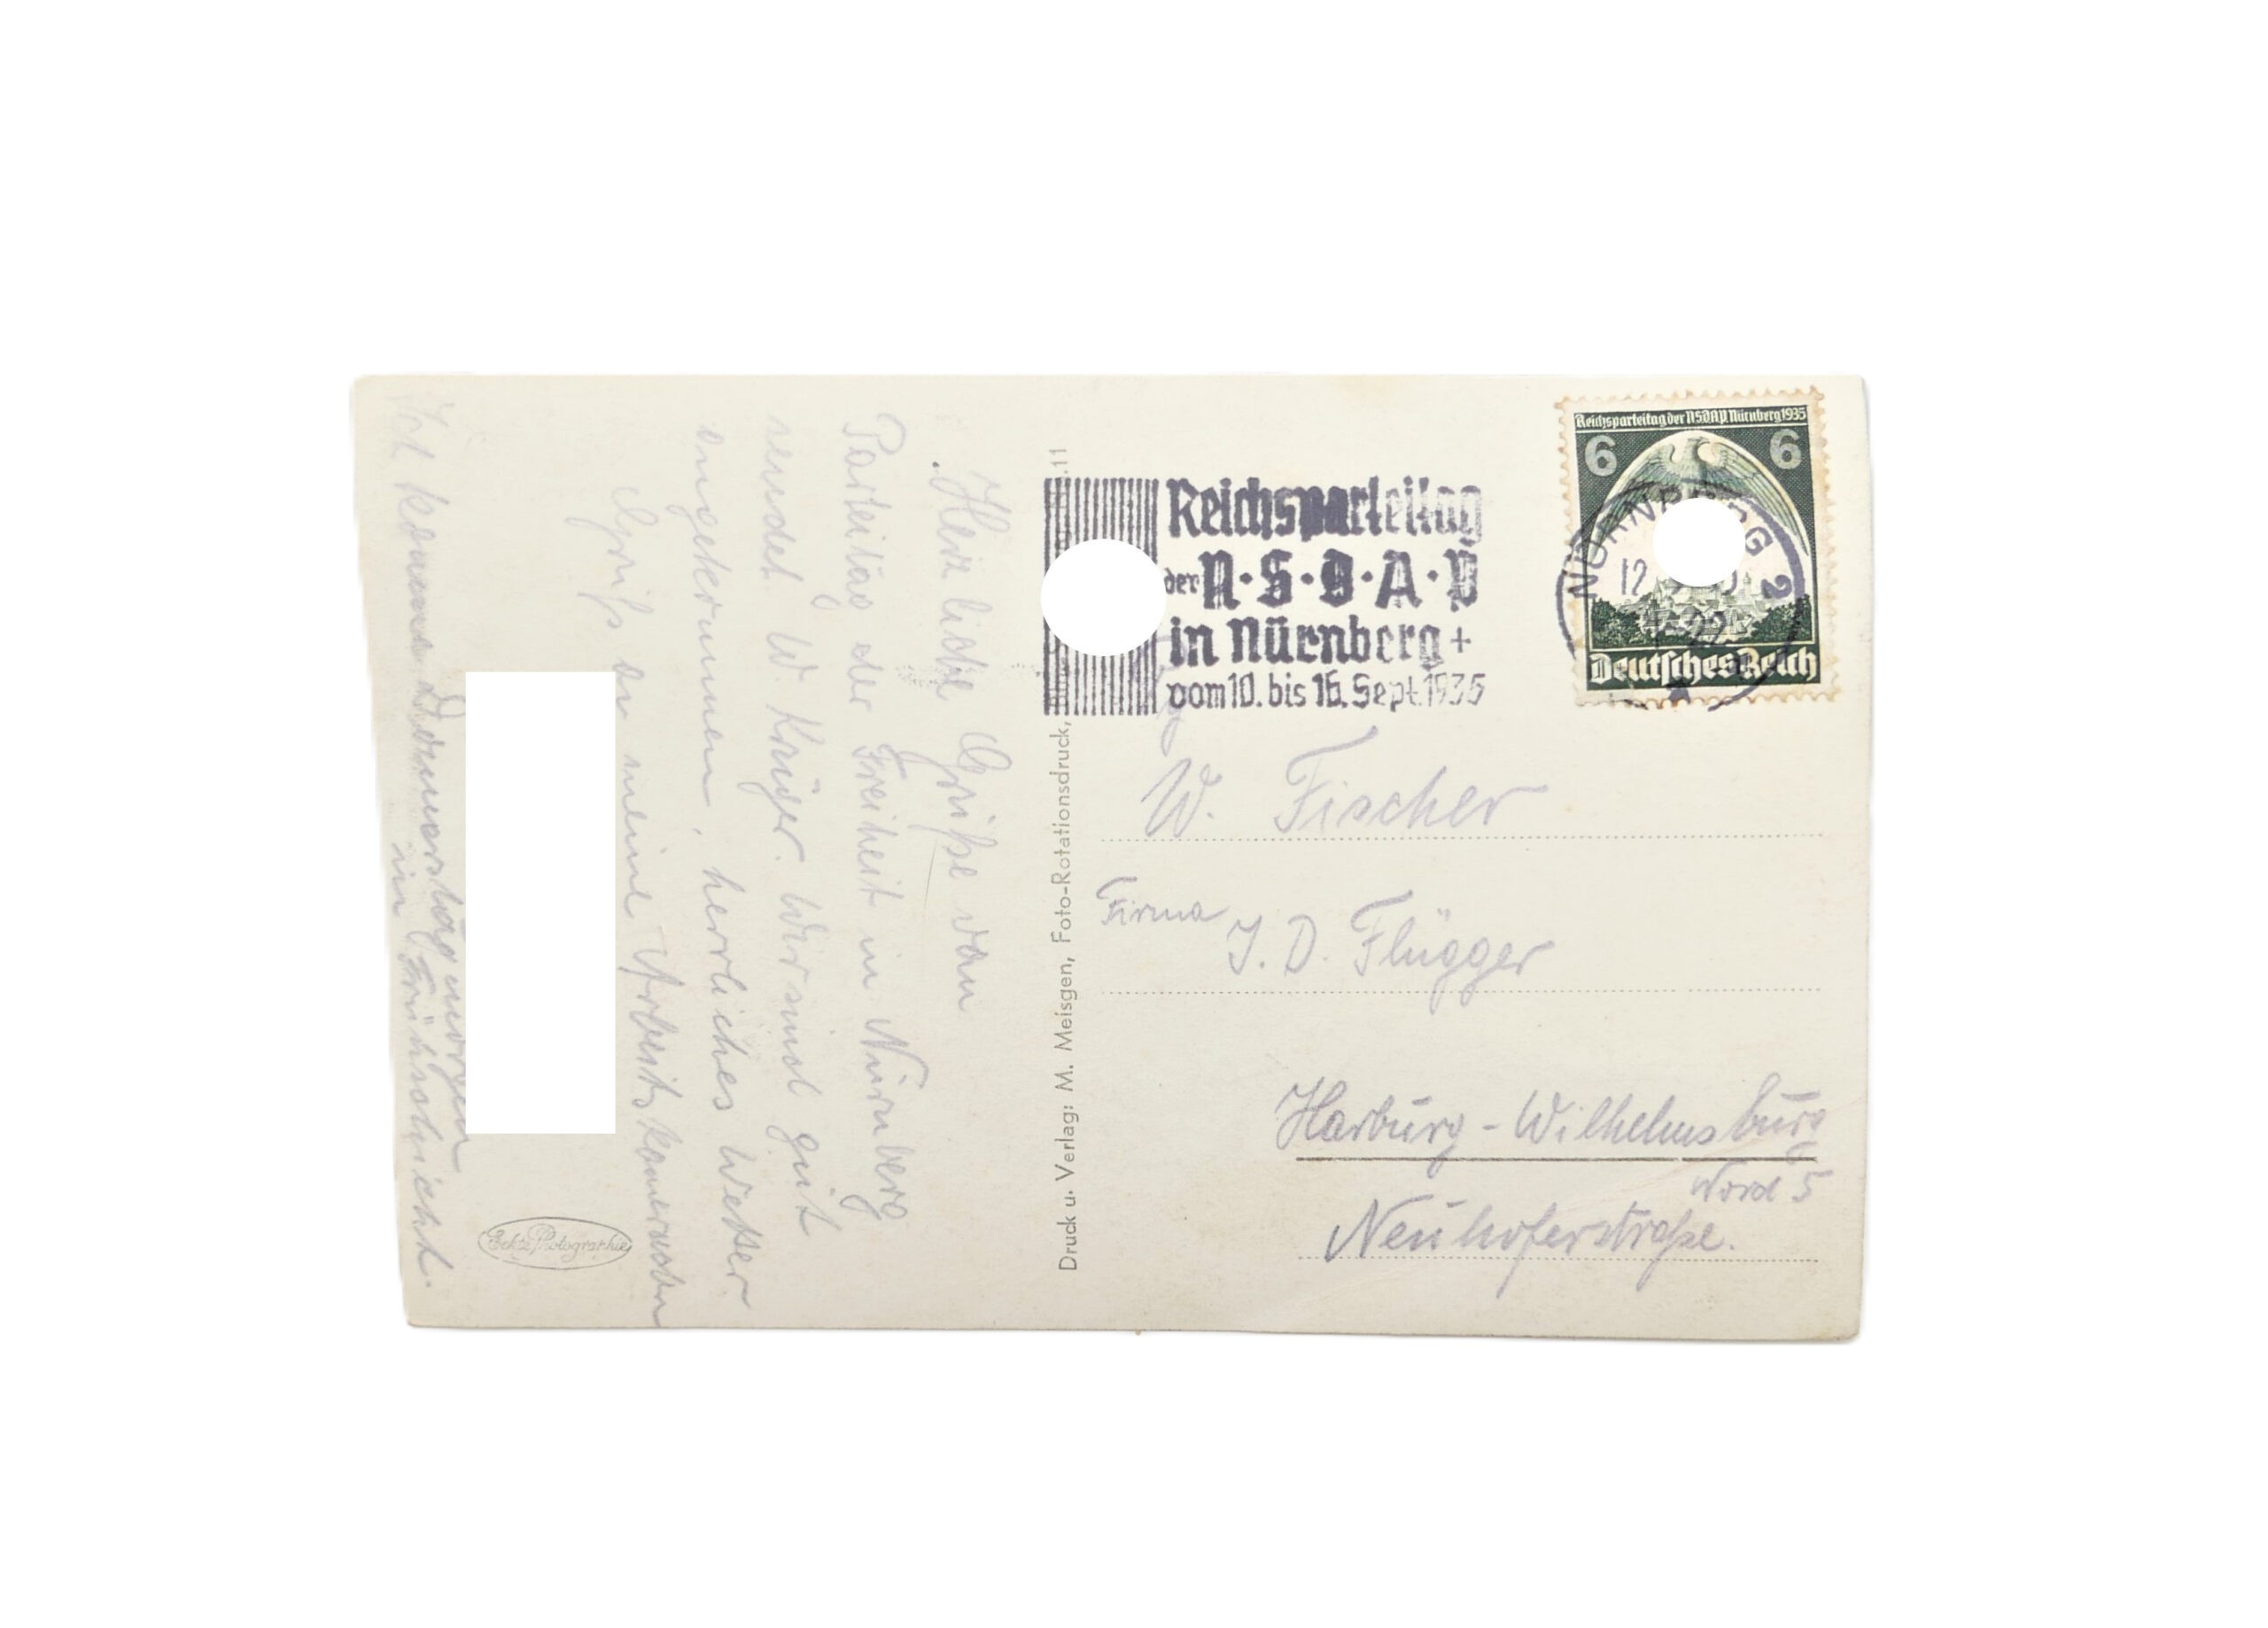 Herzliche Grüße vom
Parteitag der Freiheit in Nürnberg
sendet W. Krüger. Wir sind gut
angekommen, herrliches Wetter
Gruß an meine Arbeitskameraden
Ich komme Donnerstag morgen
in Frühschicht.
Echte Photographie
Druck u. Verlag: M. Meisgen, Foto-Rotationsdruck,
11
Reichsparteitag
der N·S·D·A·P
in Nürnberg +
vom 10. bis 16. Sept. 1935
Reichsparteitag der NSDAP Nürnberg 1935
6 6
NÜRNBERG 2
12
Deutsches Reich
W. Fischer
Firma J. D. Flügger
Harburg-Wilhelmsburg
Nord 5
Neuhoferstraße.